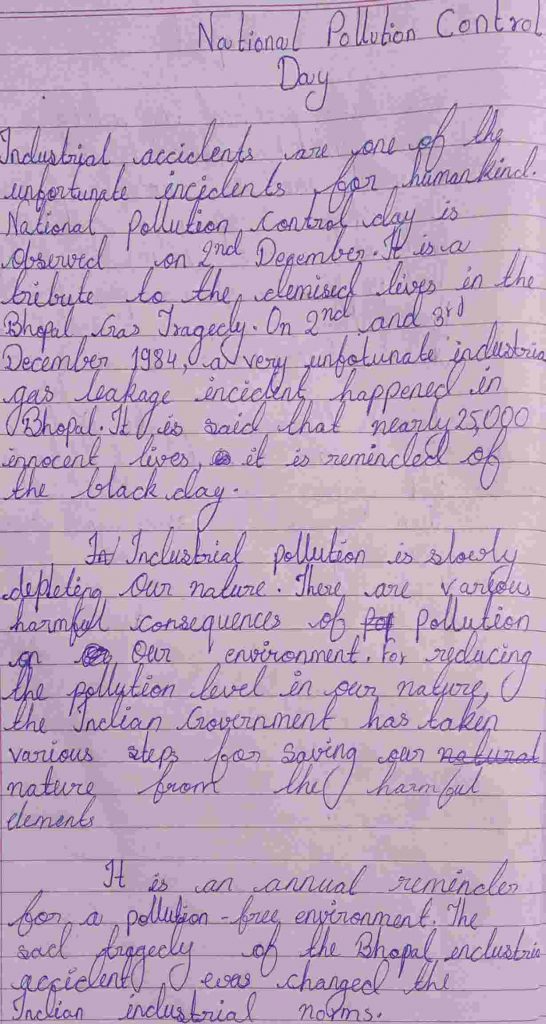 National Pollution Control
Day
Industrial accidents are one of the
unfortunate incidents for humankind.
National Pollution Control day is
Observed on 2nd December. It is a
tribute to the demised lives in the
Bhopal Gas Tragedy. On 2nd and 3rd
December 1984, a very unfotunate industria
gas leakage incident happened in
Bhopal. It is said that nearly 25,000
innocent lives, it is reminded of
the black day.
Industrial pollution is slowly
depleting Our nature. There are various
harmful consequences of Pollution
on Our environment. For reducing
the pollution level in our nature,
the Indian Government has taken
various steps for saving our natural
nature from the harmful
elements
It is an annual reminder
for a pollution-free environment. The
sad tragedy of the Bhopal industria
accident was changed the
Indian industrial norms.